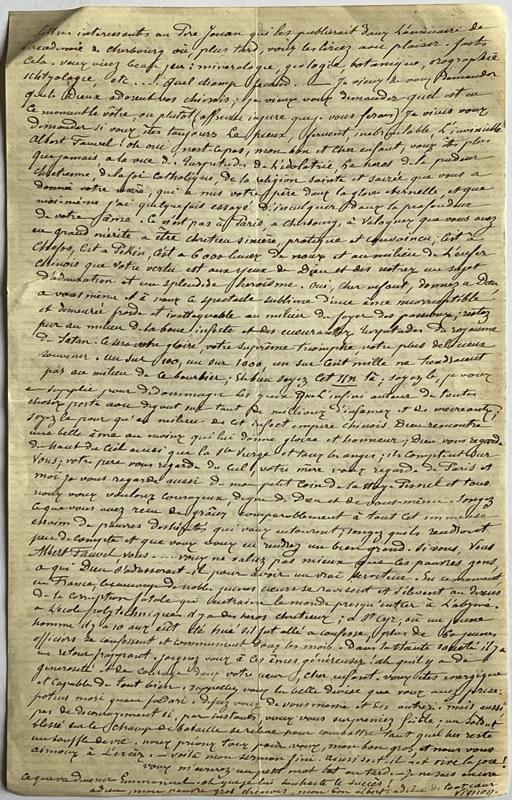 lettres intéressantes au Père Jouan qui les publierait dans l'annuaire de
l'académie de Cherbourg où, plus tard, vous les liriez avec plaisir. faites
cela. vous avez beau jeu: minéralogie, géologie, botanique, orographie
ichtyologie, etc...! quel champ fécond. — Je viens de vous demander
quels Dieux adorent vos chinois; je viens vous demander quel est en
ce moment le votre, ou plutôt (affreuse injure que je vous ferais) Je viens vous
demander si vous êtes toujours le pieux, fervent, inébranlable L'invincible
Albert Fauvel! oh oui n'est-ce pas, mon bon et cher enfant, vous êtes plus
que jamais à la vue de turpitudes de l'idolatrie, Le héros de la pudeur
chrétienne, de la foi catholique de la religion sainte et sacrée que vous a
donné votre mère, qui a mis votre père dans la gloire éternelle et que
moi même j'ai quelquefois essayé d'inculquer dans la profondeur
de votre âme. Ce n'est pas à Paris, à Cherbourg, à Valognes que vous avez
un grand mérite à être chrétien sincère, pratique et convaincu, c'est à
Chefoo, c'est à Pékin, c'est à 6000 lieues de nous et au milieu de l'enfer
chinois que votre vertu est aux yeux de Dieu et des nôtres un sujet
d'admiration et un splendide héroïsme. Oui, cher enfant, donnez à Dieu
à vous même et à nous le spectacle sublime d'une âme incorruptible
et demeurée froide et inattaquable au milieu du foyer des passions; restez
pur au milieu de la boue infecte et des écoeurantes turpitudes du royaume
de Satan. Ce sera votre gloire, votre suprême triomphe, votre plus délicieux
souvenir. un sur 100, un sur 1000, un sur cent mille ne tiendraient
pas au milieu de ce bourbier; Eh bien soyez cet UN là; soyez-le, je vous
en supplie pour dédommager les yeux que l'infini auteur de toutes
choses porte avec dégout sur tant de millions d'infames et de mécréants;
soyez-le pour qu'au milieu de cet infect empire chinois Dieu rencontre
une belle âme au moins qui lui donne gloire et honneur; Dieu vous regarde
du haut du ciel aussi que la Ste Vierge et tous les anges; ils comptent sur
vous; votre père vous regarde du ciel, votre mère vous regarde de Paris et
moi je vous regarde aussi de mon petit coin de la rue et tous
nous vous voulons courageux digne de Dieu et de vous-même. Songez
à ce que vous avez reçu de grâces comparablement à tout cet immense
essaim de pauvres déshérités qui vous entourent; songez qu'ils rendront
peu de compte et que vous vous en rendrez un bien grand. Si vous, vous
Albert Fauvel vous..... vous ne valiez pas mieux que ces pauvres gens,
à qui Dieu s'adresserait-il pour avoir un vrai serviteur. En ce moment
en France, beaucoup de nobles jeunes coeurs se ravisent et s'élèvent au dessus
de la corruption fatale qui entraine le monde presqu'entier à l'abyme.
à l'école polytechnique il y a des héros chrétiens; à St Cyr, où un jeune
homme il y a 10 ans eût été tué s'il fut allé à confesse, plus de 60 jeunes
officiers se confessent et communient tous les mois. Dans la haute société il y a
un retour frappant. joignez vous à ces âmes généreuses! ah qu'il y a de
générosité et de courage dans votre coeur, cher enfant, vous êtes énergique
et capable de tout bien; rappelez vous la belle devise que vous avez prise:
potius mori quam foedari. Défiez vous de vous même et des autres, mais aussi
pas de découragement si, par instants, vous vous surpreniez faible; un soldat
blessé sur le champ de bataille se relève pour combattre tant qu'il lui reste
un souffle de vie. nous prions tous pour vous, mon bon gros, et nous vous
aimons à l'excès. — voilà mon sermon fini. aussi soit-il et vive la joie!
vous m'écrirez un petit mot tôt ou tard. — Je ne sais encore
ce que va devenir Emmanuel
adieu mon pauvre gros chinois, mon bon albert, adieu de tout coeur